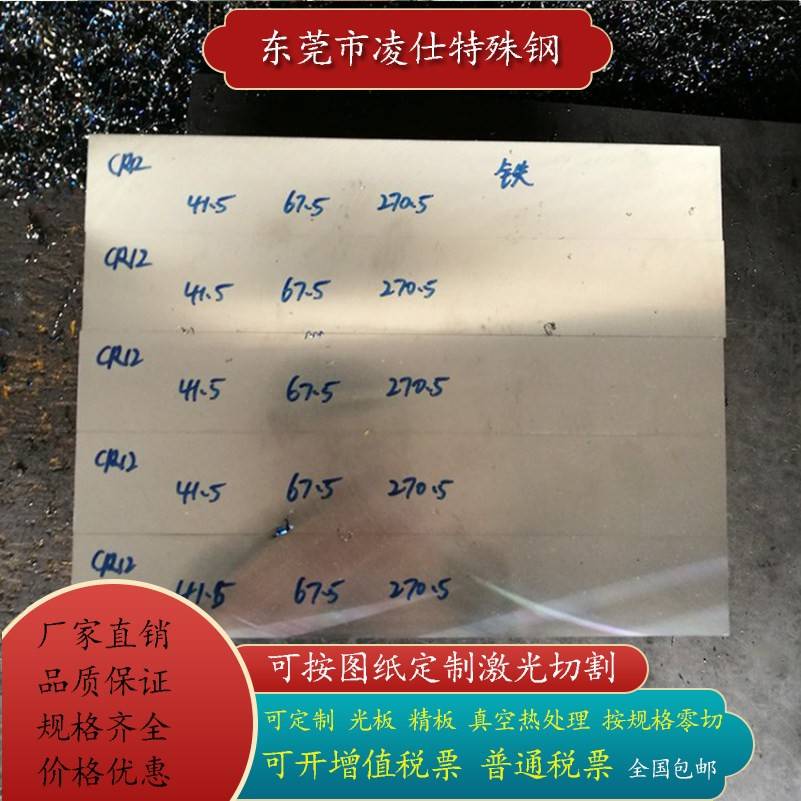 东莞市凌仕特殊钢
CR12 铁
41.5 67.5 270.5
CR12
41.5 67.5 270.5
CR12
41.5 67.5 270.5
CR12
41.5 67.5 270.5
CR12
41.5 67.5 270.5
厂家直销
品质保证
规格齐全
价格优惠
可按图纸定制激光切割
可定制 光板 精板 真空热处理 按规格零切
可开增值税票 普通税票 全国包邮